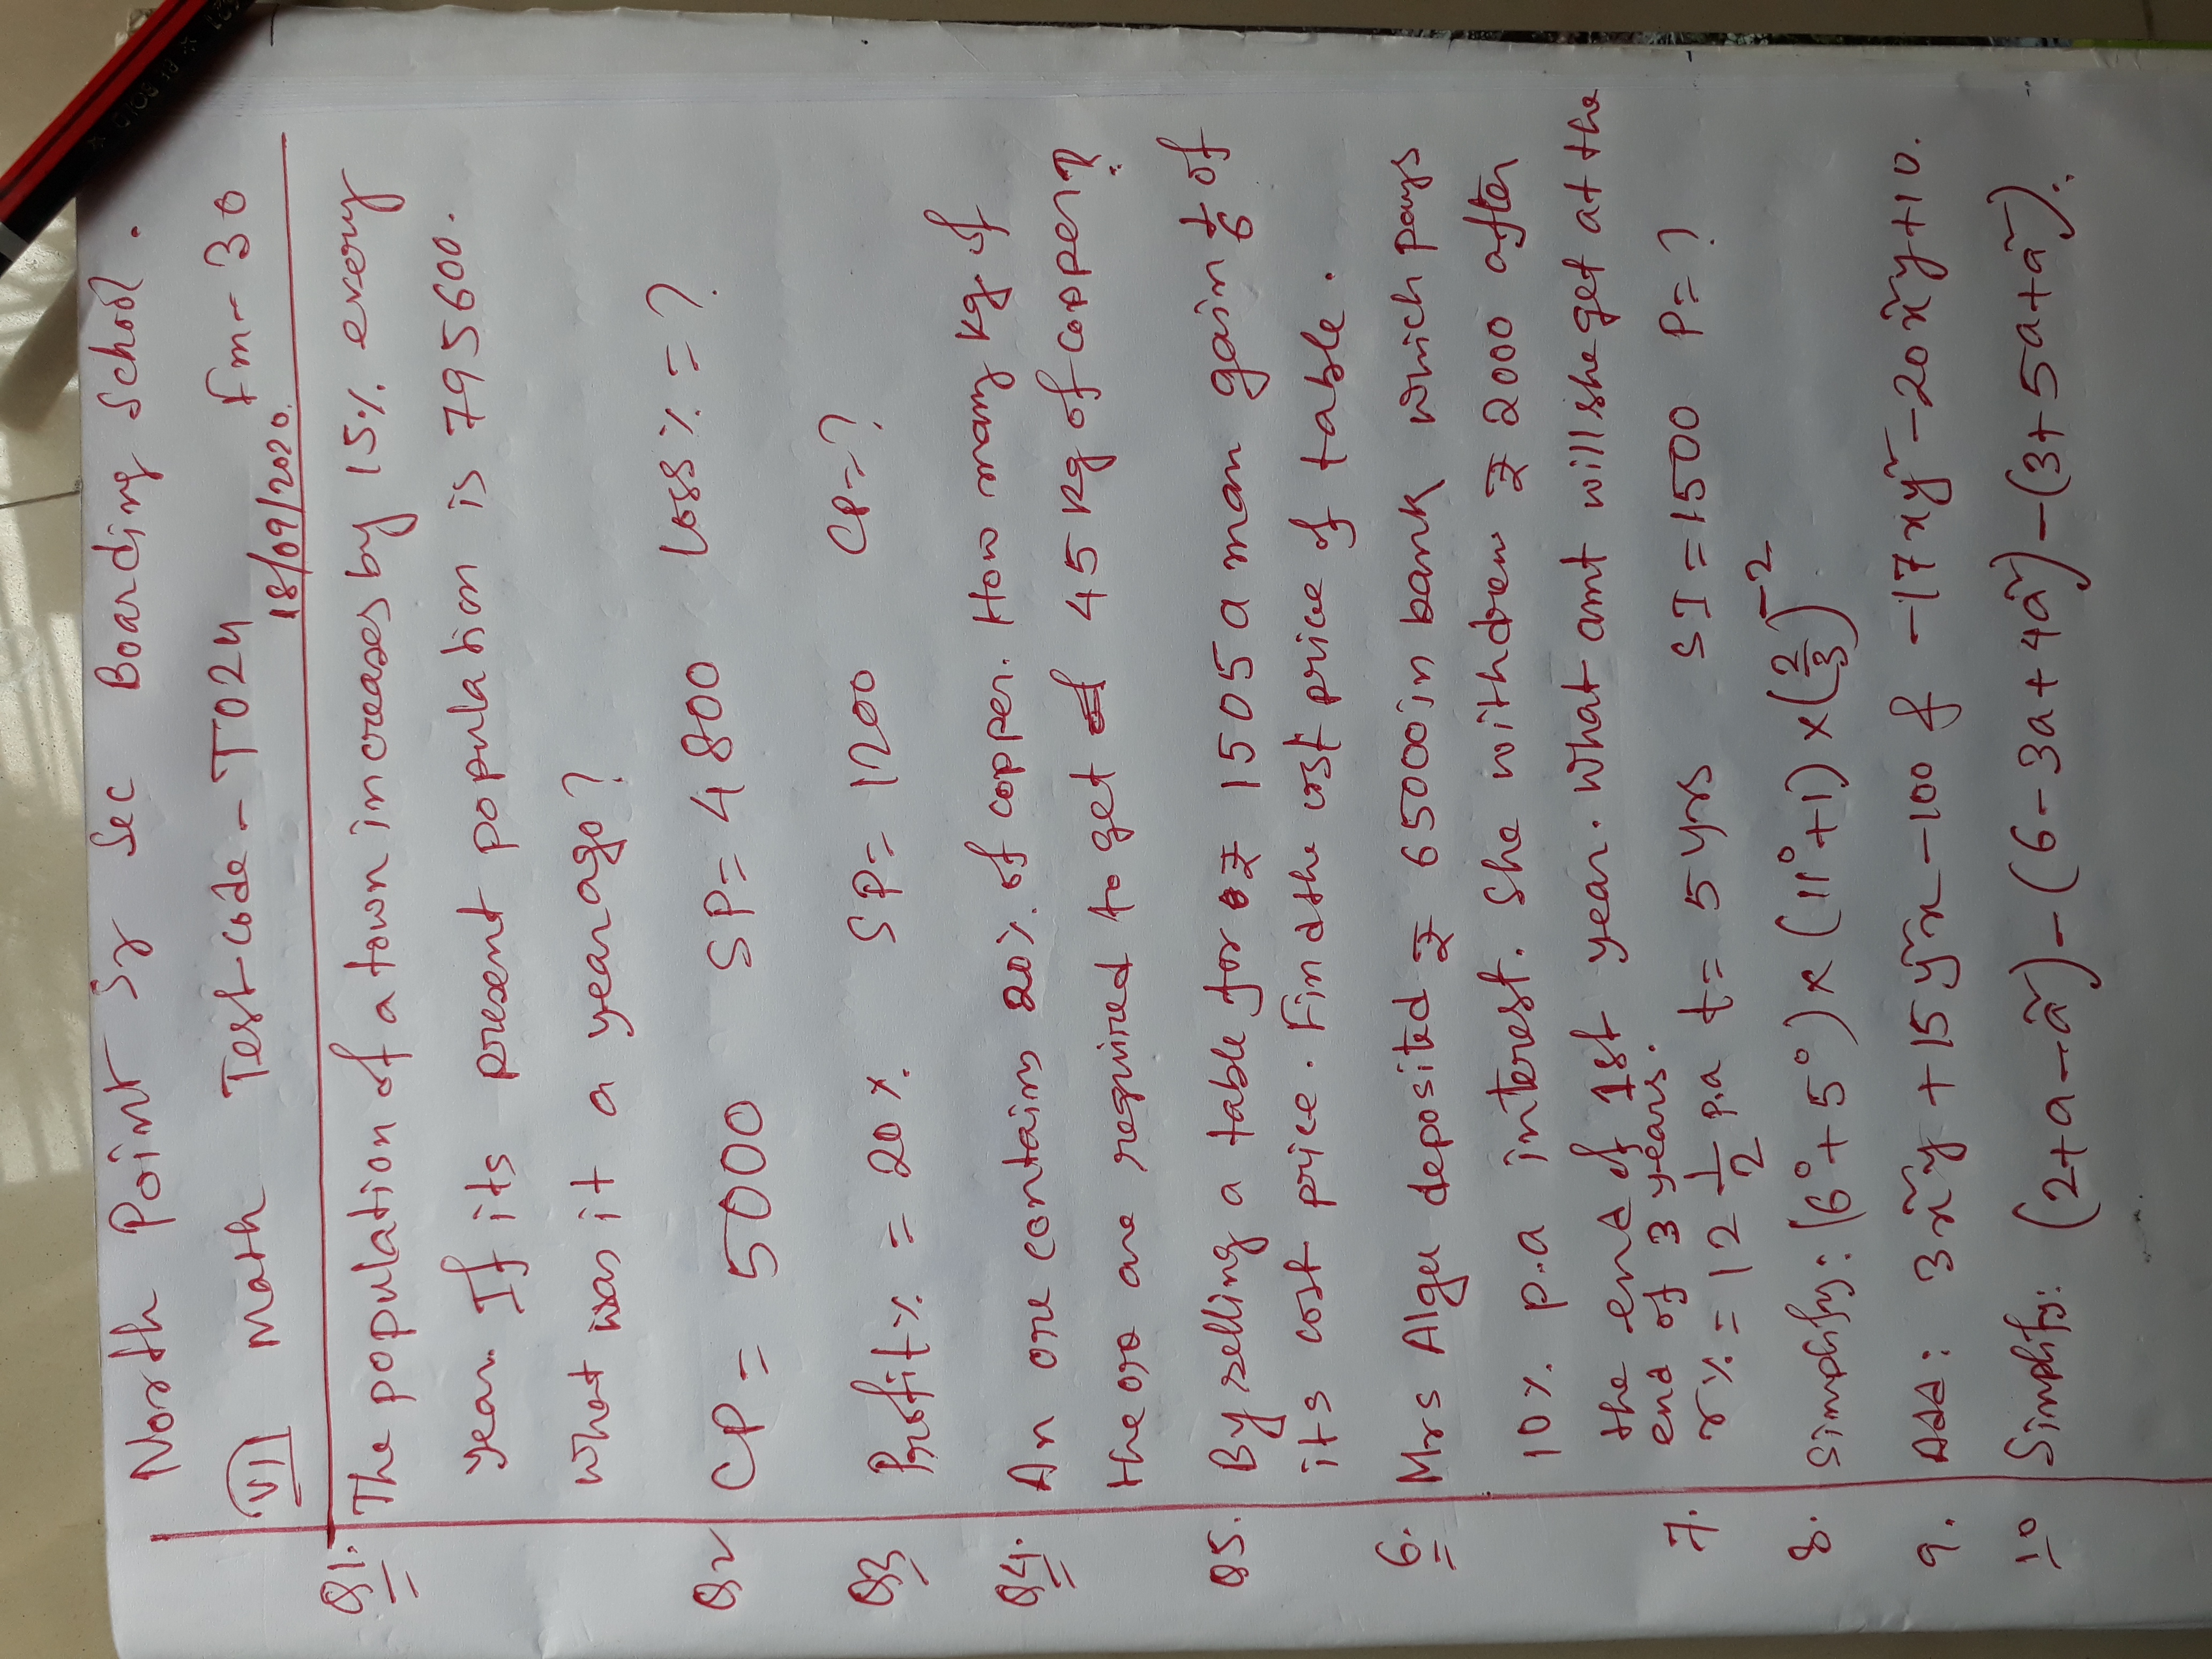 North Point Sr Sec Boarding School.
VII Math Test-code-T024 Fm-30
18/09/2020
Q1. The population of a town increases by 15% every
year. If its present population is 795600.
What was it a year ago?
Q2 CP = 5000 SP= 4800 Loss% = ?
Q3 Profit% = 20% SP= 1200 CP=?
Q4. An ore contains 20% of copper. How many kg of
the ore are required to get 45 kg of copper?
Q5. By selling a table for ₹ 1505 a man gain 1/6 of
its cost price. Find the cost price of table.
6. Mrs Algu deposited ₹ 65000 in bank which pays
10% p.a interest. She withdrew ₹ 2000 after
the end of 1st year. What amt will she get at the
end of 3 years.
7. r% = 12 1/2 p.a t= 5 yrs SI = 1500 P= ?
8. Simplify: (6⁰+5⁰) × (11⁰+1) × (2/3)⁻²
9. Add: 3x²y + 15y²x - 100 & -17xy² - 20x²y + 10.
10 Simplify: (2+a-a²) - (6-3a+4a²) - (3+5a+a²).